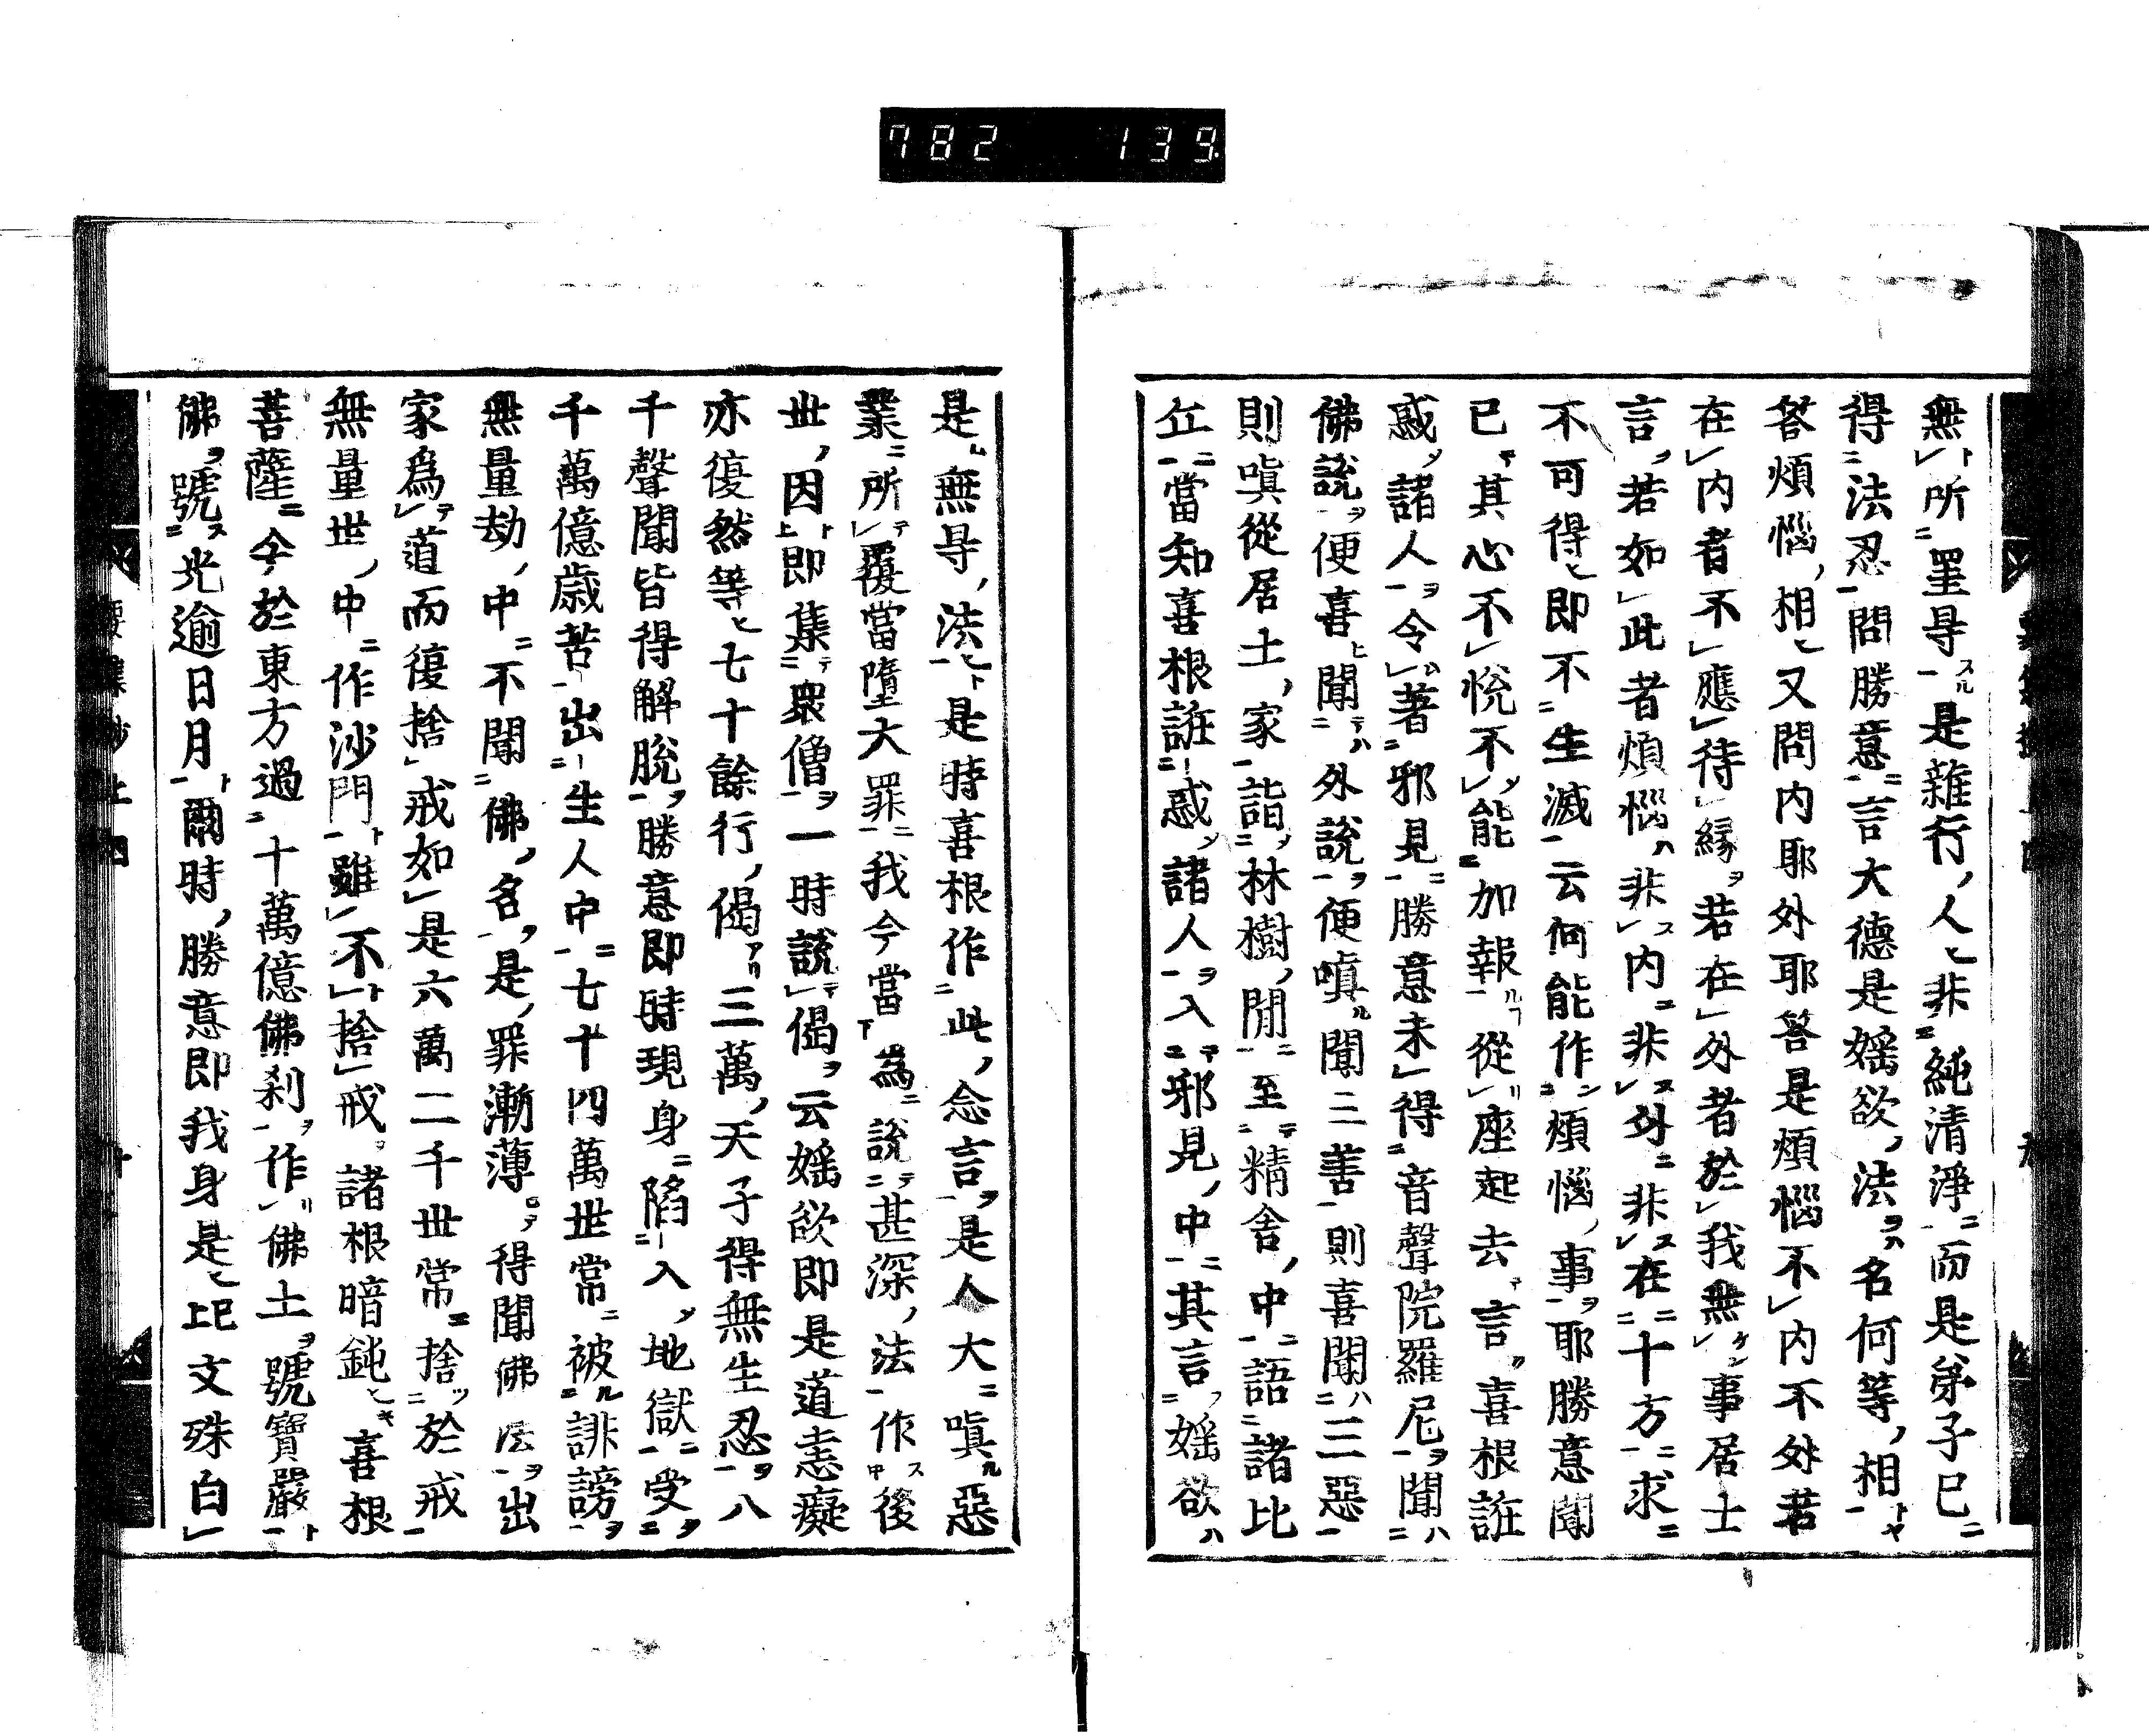 782 139
無所罣㝵是雜行人非純清淨而是弟子已
得法忍問勝意言大德是婬欲法名何等相
答煩惱相又問内耶外耶答是煩惱不内不外若
在内者不應待縁若在外者於我無事居士
言若如此者煩惱非内非外非在十方求
不可得即不生滅云何能作煩惱事耶勝意聞
已其心不悅不能加報從座起去言喜根誑
惑諸人令著邪見勝意未得音聲陀羅尼聞
佛說便喜聞外說便嗔聞三善則喜聞三惡
則嗔從居士家詣林樹間至精舍中語諸比
丘當知喜根誑惑諸人入邪見中其言婬欲
是無㝵法是時喜根作此念言是人大嗔惡
業所覆當墮大罪我今當為說甚深法作後
世因即集衆僧一時說偈云婬欲即是道恚癡
亦復然等七十餘行偈三萬天子得無生忍八
千聲聞皆得解脫勝意即時現身陷入地獄受
千萬億歳苦出生人中七十四萬世常被誹謗
無量劫中不聞佛名是罪漸薄得聞佛法出
家爲道而復捨戒如是六萬二千世常捨於戒
無量世中作沙門雖不捨戒諸根暗鈍喜根
菩薩今於東方過十萬億佛刹作佛土號寶嚴
佛號光逾日月爾時勝意即我身是已文殊白